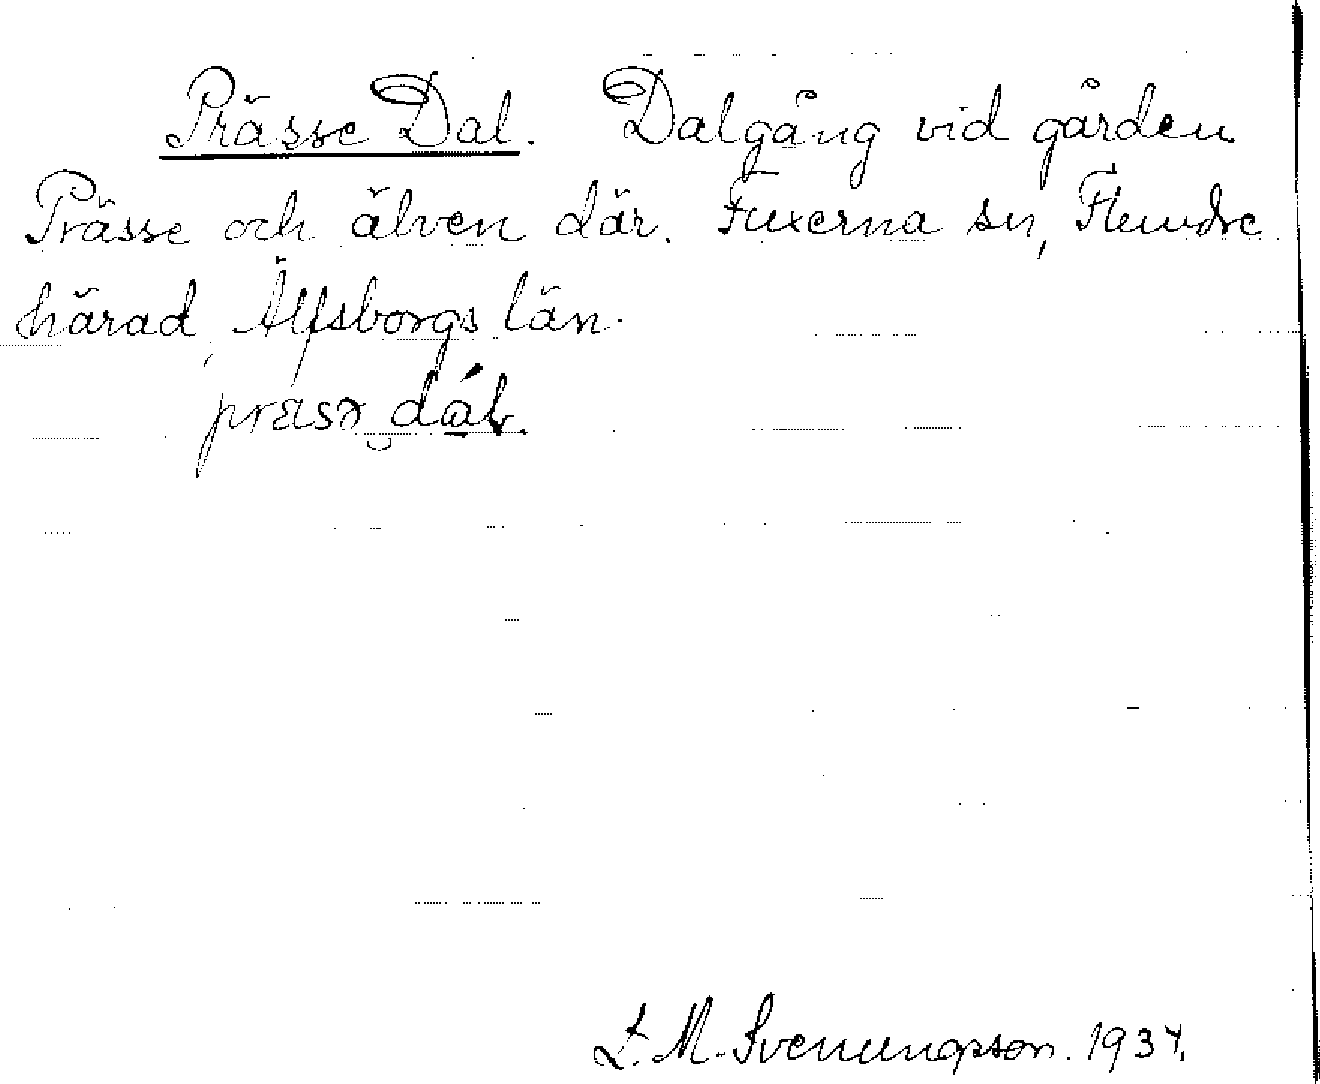 Prässe Dal. Dalgång vid gården
Prässe och älven där. Fuxerna sn, Flundre
härad, Älfsborgs län.
präsə dál.
L. M. Svenungsson. 1934.